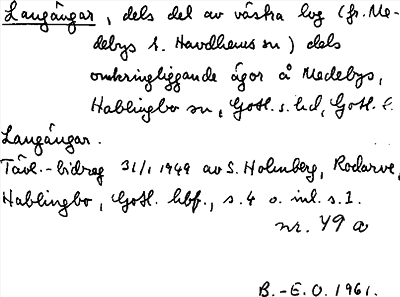 Laugångar, dels del av västra lug (fr. Me-
debys t. Havdhems sn) dels
omkringliggande ägor å Medebys,
Hablingbo sn, Gotl. s. hd, Gotl. l.
Laugångar.
Tävl.-bidrag 31/1 1949 av S. Holmberg, Rodarve,
Hablingbo, Gotl. hbf., s. 4 o. inl. s. 1.
nr. 49 a
B.-E. O. 1961.